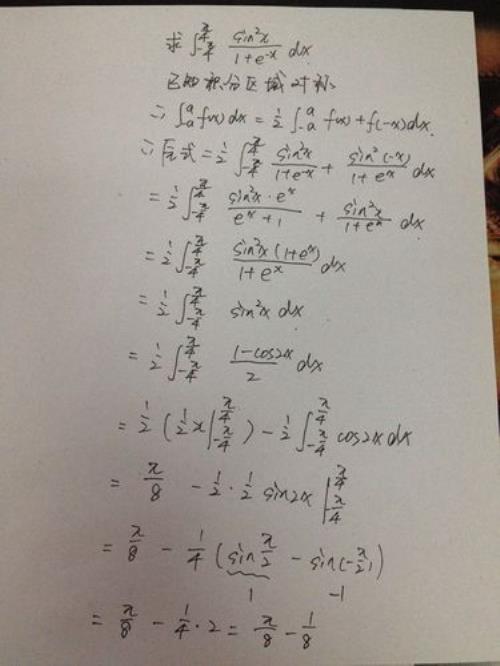 求 ∫_{-π/4}^{π/4} sin²x/(1+e^{-x}) dx
已知积分区域对称
∵ ∫_{-a}^{a} f(x)dx = 1/2 ∫_{-a}^{a} f(x)+f(-x)dx.
∵ 原式 = 1/2 ∫_{-π/4}^{π/4} sin²x/(1+e^{-x}) + sin²(-x)/(1+e^{x}) dx
= 1/2 ∫_{-π/4}^{π/4} sin²x·e^x/(e^x+1) + sin²x/(1+e^x) dx
= 1/2 ∫_{-π/4}^{π/4} sin²x(1+e^x)/(1+e^x) dx
= 1/2 ∫_{-π/4}^{π/4} sin²x dx
= 1/2 ∫_{-π/4}^{π/4} (1-cos2x)/2 dx
= 1/2 (1/2 x |_{-π/4}^{π/4}) - 1/2 ∫_{-π/4}^{π/4} cos2x dx
= π/8 - 1/2 · 1/2 sin2x |_{-π/4}^{π/4}
= π/8 - 1/4 (sin π/2 - sin(-π/2))
1 -1
= π/8 - 1/4 · 2 = π/8 - 1/8